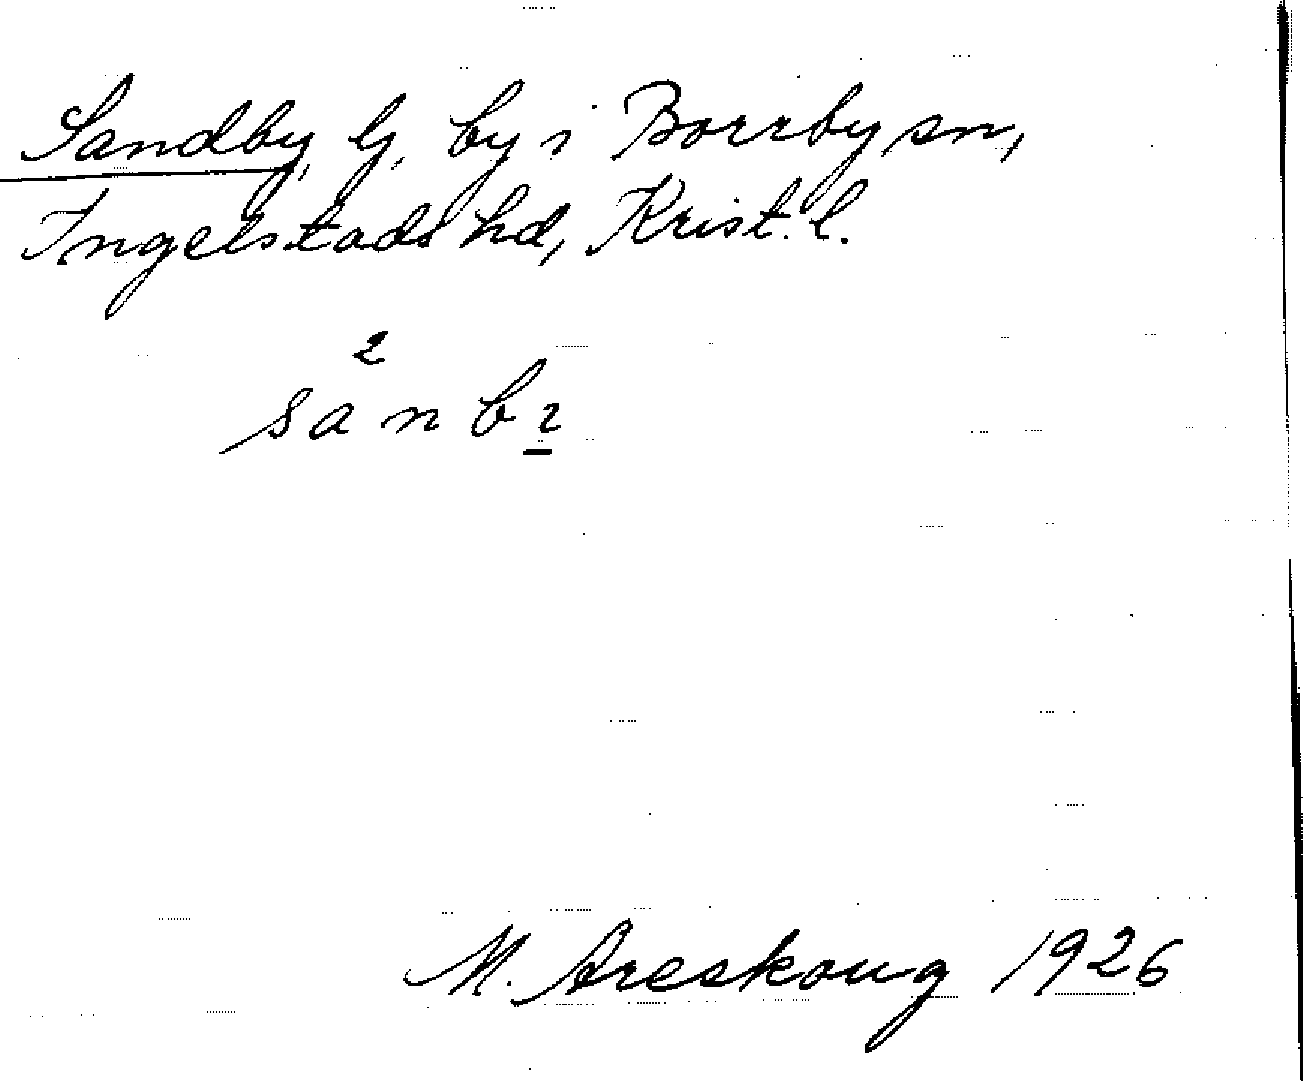 Sandby, G, by i Borrby sn,
Ingelstads hd, Krist. l.
2
sanbı
M. Areskoug 1926